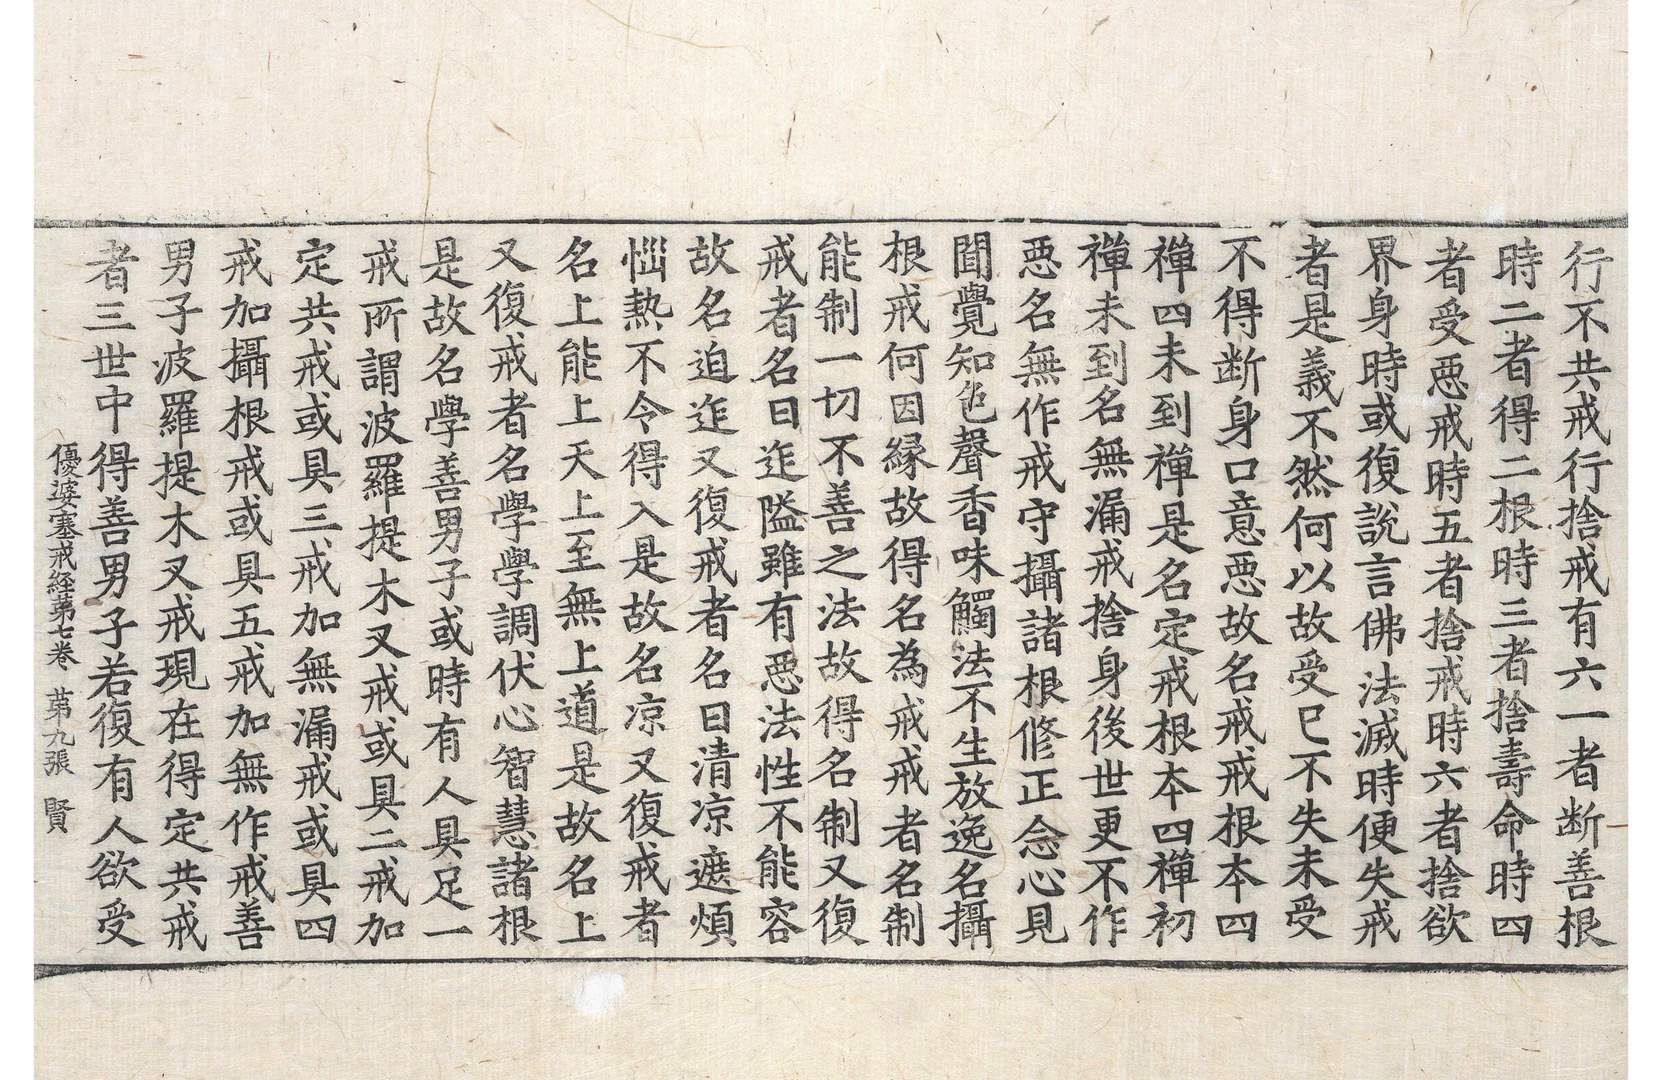 行不共戒行捨戒有六一者断善根
時二者得二根時三者捨壽命時四
者受惡戒時五者捨戒時六者捨欲
界身時或復說言佛法滅時便失戒
者是義不然何以故受已不失未受
不得断身口意惡故名戒戒根本四
禪四未到禪是名定戒根本四禪初
禪未到名無漏戒捨身後世更不作
惡名無作戒守攝諸根修正念心見
聞覺知色聲香味觸法不生放逸名攝
根戒何因縁故得名為戒戒者名制
能制一切不善之法故得名制又復
戒者名曰迮隘雖有惡法性不能容
故名迫迮又復戒者名曰清凉遮煩
惱熱不令得入是故名凉又復戒者
名上能上天上至無上道是故名上
又復戒者名學學調伏心智慧諸根
是故名學善男子或時有人具足一
戒所謂波羅提木叉戒或具二戒加
定共戒或具三戒加無漏戒或具四
戒加攝根戒或具五戒加無作戒善
男子波羅提木叉戒現在得定共戒
者三世中得善男子若復有人欲受
優婆塞戒経苐七卷 苐九張 賢